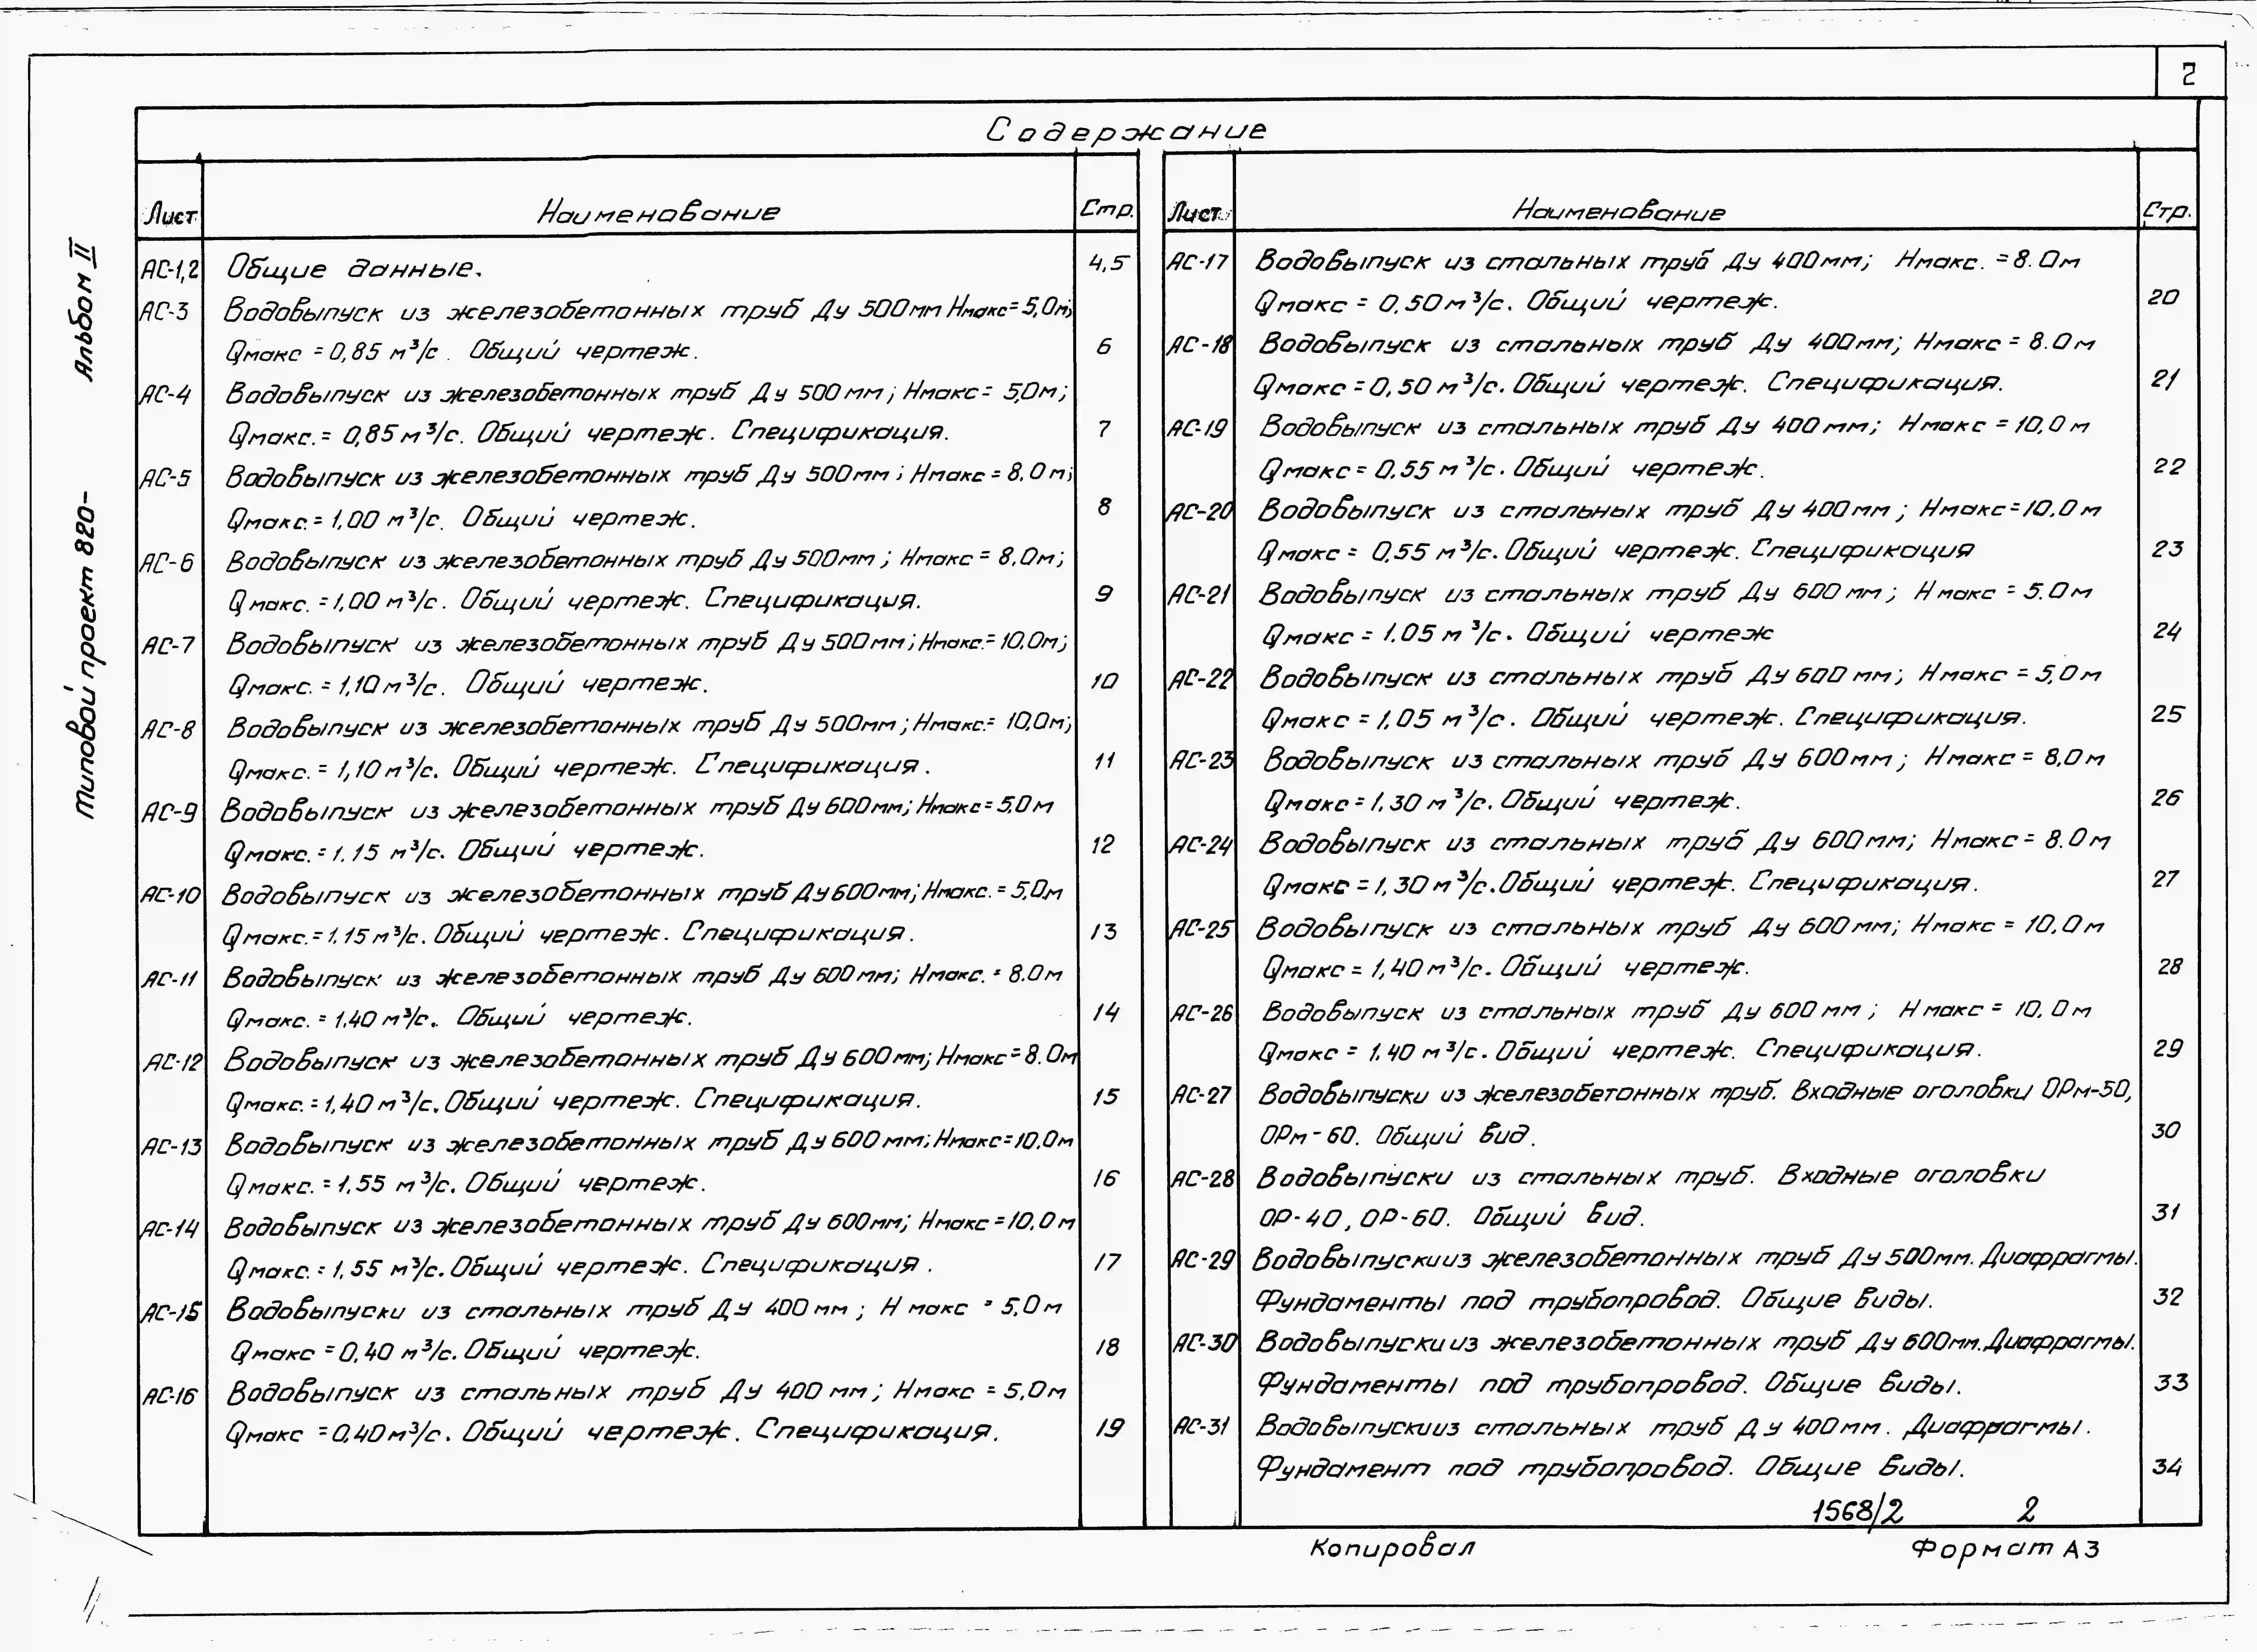 2
Содержание
Лист Наименование Стр.
АС-1,2 Общие данные. 4,5
АС-3 Водовыпуск из железобетонных труб Ду 500мм Нмакс=5,0м;
Qмакс = 0,85 м³/с. Общий чертеж. 6
АС-4 Водовыпуск из железобетонных труб Ду 500мм; Нмакс= 5,0м;
Qмакс.= 0,85м³/с. Общий чертеж. Спецификация. 7
АС-5 Водовыпуск из железобетонных труб Ду 500мм; Нмакс = 8,0м;
Qмакс.= 1,00 м³/с. Общий чертеж. 8
АС-6 Водовыпуск из железобетонных труб Ду 500мм; Нмакс = 8,0м;
Qмакс. = 1,00 м³/с. Общий чертеж. Спецификация. 9
АС-7 Водовыпуск из железобетонных труб Ду 500мм; Нмакс.= 10,0м;
Qмакс. = 1,10м³/с. Общий чертеж. 10
АС-8 Водовыпуск из железобетонных труб Ду 500мм; Нмакс.= 10,0м;
Qмакс. = 1,10м³/с. Общий чертеж. Спецификация. 11
АС-9 Водовыпуск из железобетонных труб Ду 600мм; Нмакс= 5,0м
Qмакс. = 1.15 м³/с. Общий чертеж. 12
АС-10 Водовыпуск из железобетонных труб Ду 600мм; Нмакс. = 5,0м
Qмакс.= 1,15м³/с. Общий чертеж. Спецификация. 13
АС-11 Водовыпуск из железобетонных труб Ду 600мм; Нмакс. = 8.0м
Qмакс. = 1,40 м³/с. Общий чертеж. 14
АС-12 Водовыпуск из железобетонных труб Ду 600мм; Нмакс = 8.0м
Qмакс. = 1,40 м³/с. Общий чертеж. Спецификация. 15
АС-13 Водовыпуск из железобетонных труб Ду 600мм; Нмакс=10,0м
Qмакс. = 1,55 м³/с. Общий чертеж. 16
АС-14 Водовыпуск из железобетонных труб Ду 600мм; Нмакс =10,0м
Qмакс. = 1,55 м³/с. Общий чертеж. Спецификация. 17
АС-15 Водовыпуски из стальных труб Ду 400мм; Нмакс = 5,0м
Qмакс = 0,40 м³/с. Общий чертеж. 18
АС-16 Водовыпуск из стальных труб Ду 400мм; Нмакс = 5,0м
Qмакс = 0,40м³/с. Общий чертеж. Спецификация. 19
Лист Наименование Стр.
АС-17 Водовыпуск из стальных труб Ду 400мм; Нмакс. = 8.0м
Qмакс = 0,50м³/с. Общий чертеж. 20
АС-18 Водовыпуск из стальных труб Ду 400мм; Нмакс = 8.0м
Qмакс = 0,50 м³/с. Общий чертеж. Спецификация. 21
АС-19 Водовыпуск из стальных труб Ду 400мм; Нмакс = 10,0м
Qмакс = 0.55 м³/с. Общий чертеж. 22
АС-20 Водовыпуск из стальных труб Ду 400мм; Нмакс=10,0м
Qмакс = 0,55 м³/с. Общий чертеж. Спецификация 23
АС-21 Водовыпуск из стальных труб Ду 600мм; Нмакс = 5.0м
Qмакс = 1.05 м³/с. Общий чертеж 24
АС-22 Водовыпуск из стальных труб Ду 600 мм; Нмакс = 5,0м
Qмакс = 1,05 м³/с. Общий чертеж. Спецификация. 25
АС-23 Водовыпуск из стальных труб Ду 600мм; Нмакс = 8,0м
Qмакс = 1,30 м³/с. Общий чертеж. 26
АС-24 Водовыпуск из стальных труб Ду 600мм; Нмакс = 8.0м
Qмакс = 1,30 м³/с. Общий чертеж. Спецификация. 27
АС-25 Водовыпуск из стальных труб Ду 600мм; Нмакс = 10,0м
Qмакс = 1,40м³/с. Общий чертеж. 28
АС-26 Водовыпуск из стальных труб Ду 600мм; Нмакс = 10,0м
Qмакс = 1.40 м³/с. Общий чертеж. Спецификация. 29
АС-27 Водовыпуски из железобетонных труб. Входные оголовки ОРм-50,
ОРм-60. Общий вид. 30
АС-28 Водовыпуски из стальных труб. Входные оголовки
ОР-40, ОР-60. Общий вид. 31
АС-29 Водовыпуски из железобетонных труб Ду 500мм. Диафрагмы.
Фундаменты под трубопровод. Общие виды. 32
АС-30 Водовыпуски из железобетонных труб Ду 600мм. Диафрагмы.
Фундаменты под трубопровод. Общие виды. 33
АС-31 Водовыпуски из стальных труб Ду 400мм. Диафрагмы.
Фундамент под трубопровод. Общие виды. 34
1568/2 2
Копировал Формат А3
Типовой проект 820- Альбом II